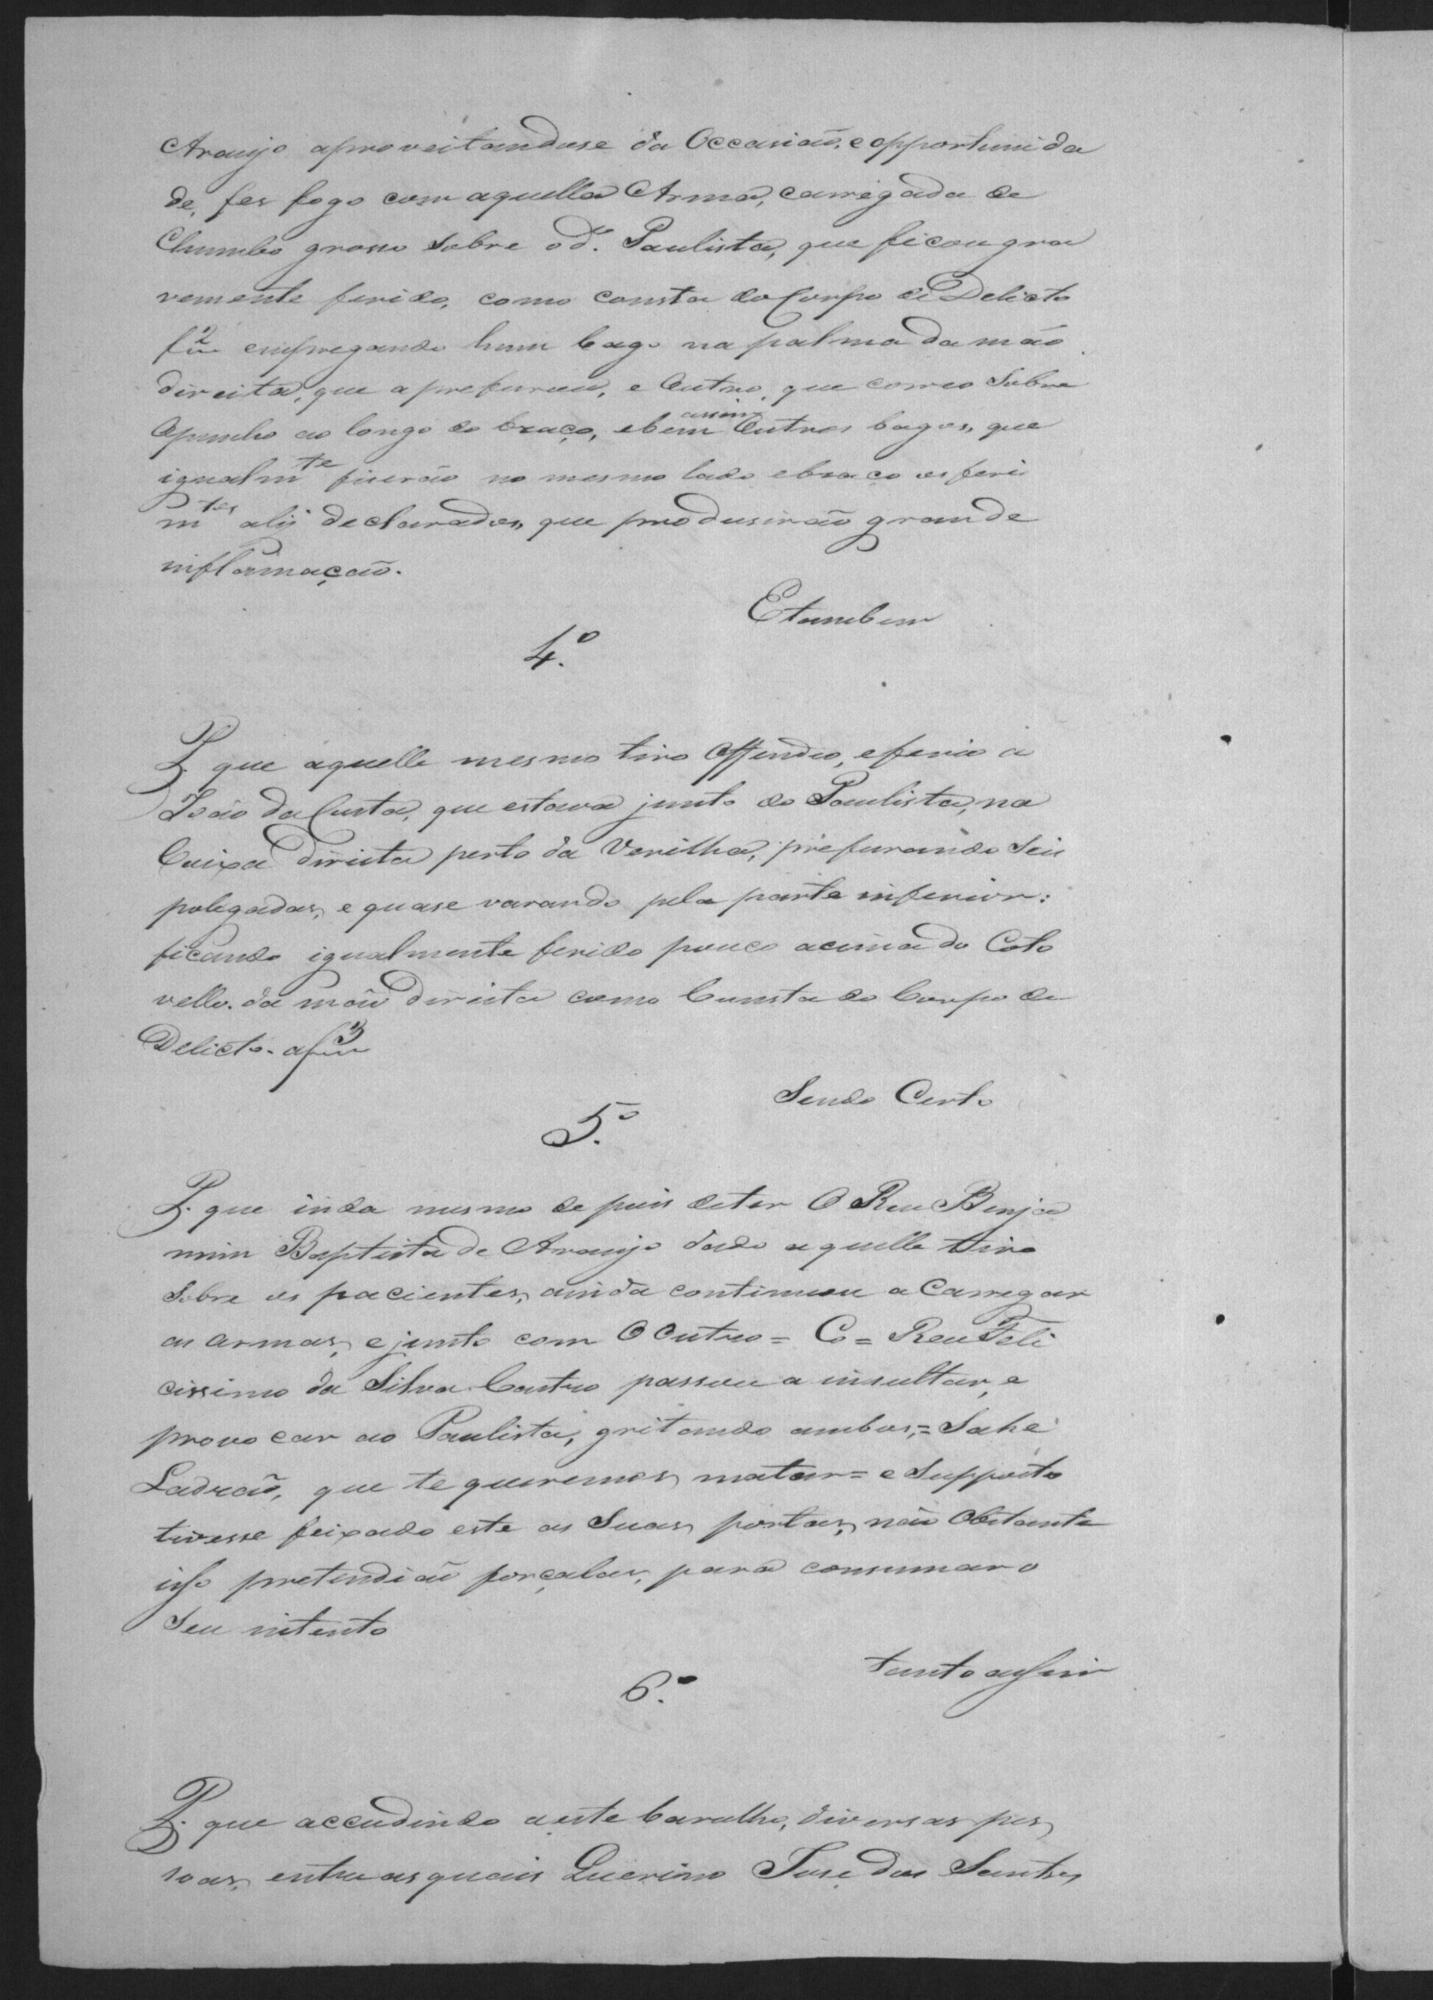 Araujo aproveitandose da Occasião, e opportunida
de, fes fogo com aquella Arma, carregada de
Chumbo grosso sobre o d.º Paulista, que ficou gra
vemente ferido, como consta do Corpo de Delicto
f 2 empregando hum bago na palma da mão
direita, que a prefurou, e Outro, que correo sobre
Opunho ao longo do braço, e bem assim Outros bagos, que
igualmte fizerão no mesmo lado e braço os feri
mtes ali declarados, que produsirão grande
inflamação.
E tambem
4.º
P. que aquelle mesmo tiro Offendeo, e ferio a
João da Costa, que estava junto do Paulista, na
Coixa direita perto da Verilha, prefurando seis
polegadas, e quase varando pela parte inferior:
ficando igualmente ferido pouco acima do Coto
vello da mão direita como Consta do Corpo de
Delicto a f 3
Sendo Certo
5.º
P. que inda mesmo depois deter O Reu Benja
mim Baptista de Araujo dado aquelle tiro
sobre os pacientes, ainda continuou a Carregar
as armas, e junto com O Outro = Co = Reu Feli
cissimo da Silva Castro passou a insultar, e
provocar ao Paulista, gritando ambos, = Sahe
Ladrão, que te queremos matar = e Supposto
tivesse feixado este as Suas portas, não Obstante
isso pretendião forçalas, para consumar o
Seu intento
tanto assim
6.º
P. que accudindo a este barulho, diversas pes
soas, entre as quais Querino Jose dos Santos,